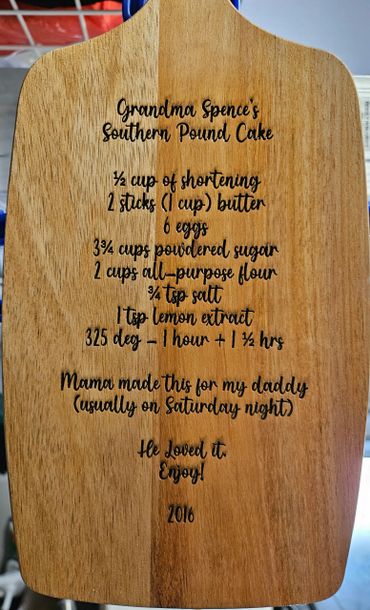 Grandma Spence's
Southern Pound Cake
½ cup of shortening
2 sticks (1 cup) butter
6 eggs
3¾ cups powdered sugar
2 cups all-purpose flour
¾ tsp salt
1 tsp lemon extract
325 deg - 1 hour + 1 ½ hrs
Mama made this for my daddy
(usually on Saturday night)
He Loved it.
Enjoy!
2016